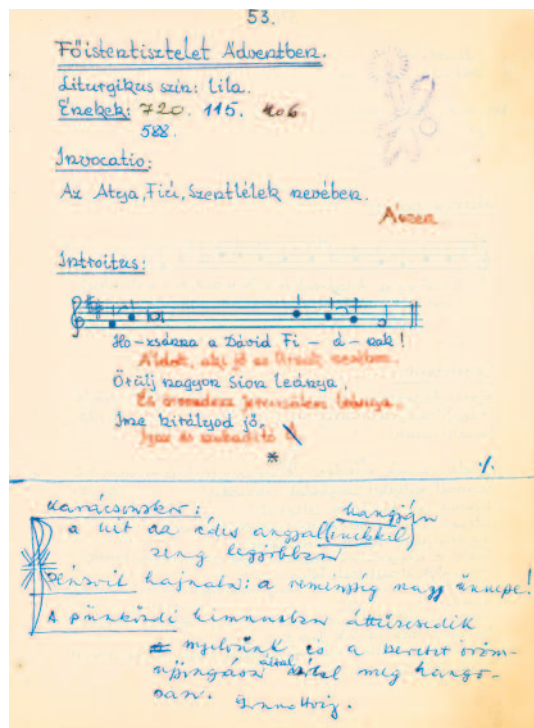 53.
Főistentisztelet Ádventben.
Liturgikus szín: Lila.
Énekek: 720. 115. 406
588.
Invocatio:
Az Atya, Fiú, Szentlélek nevében.
Ámen
Introitus:
Ho-zsánna a Dávid Fi - á - nak!
Áldott, aki jő az Úrnak nevében.
Örülj nagyon Sion leánya,
És örvendezz Jeruzsálem leánya.
Ime királyod jő,
Igaz és szabadító Ő
*
./.
Karácsonkor: hangján
a hit az édes angyal(énekkel)
zeng legjobban
hajnala: a reménység nagy ünnepe!
A pünkösdi himnuszban áttüzesedik
nyelvünk és a szeretet öröm-
ujjongása által meg hango-
san.